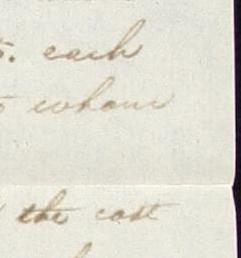 each
whom
the cost